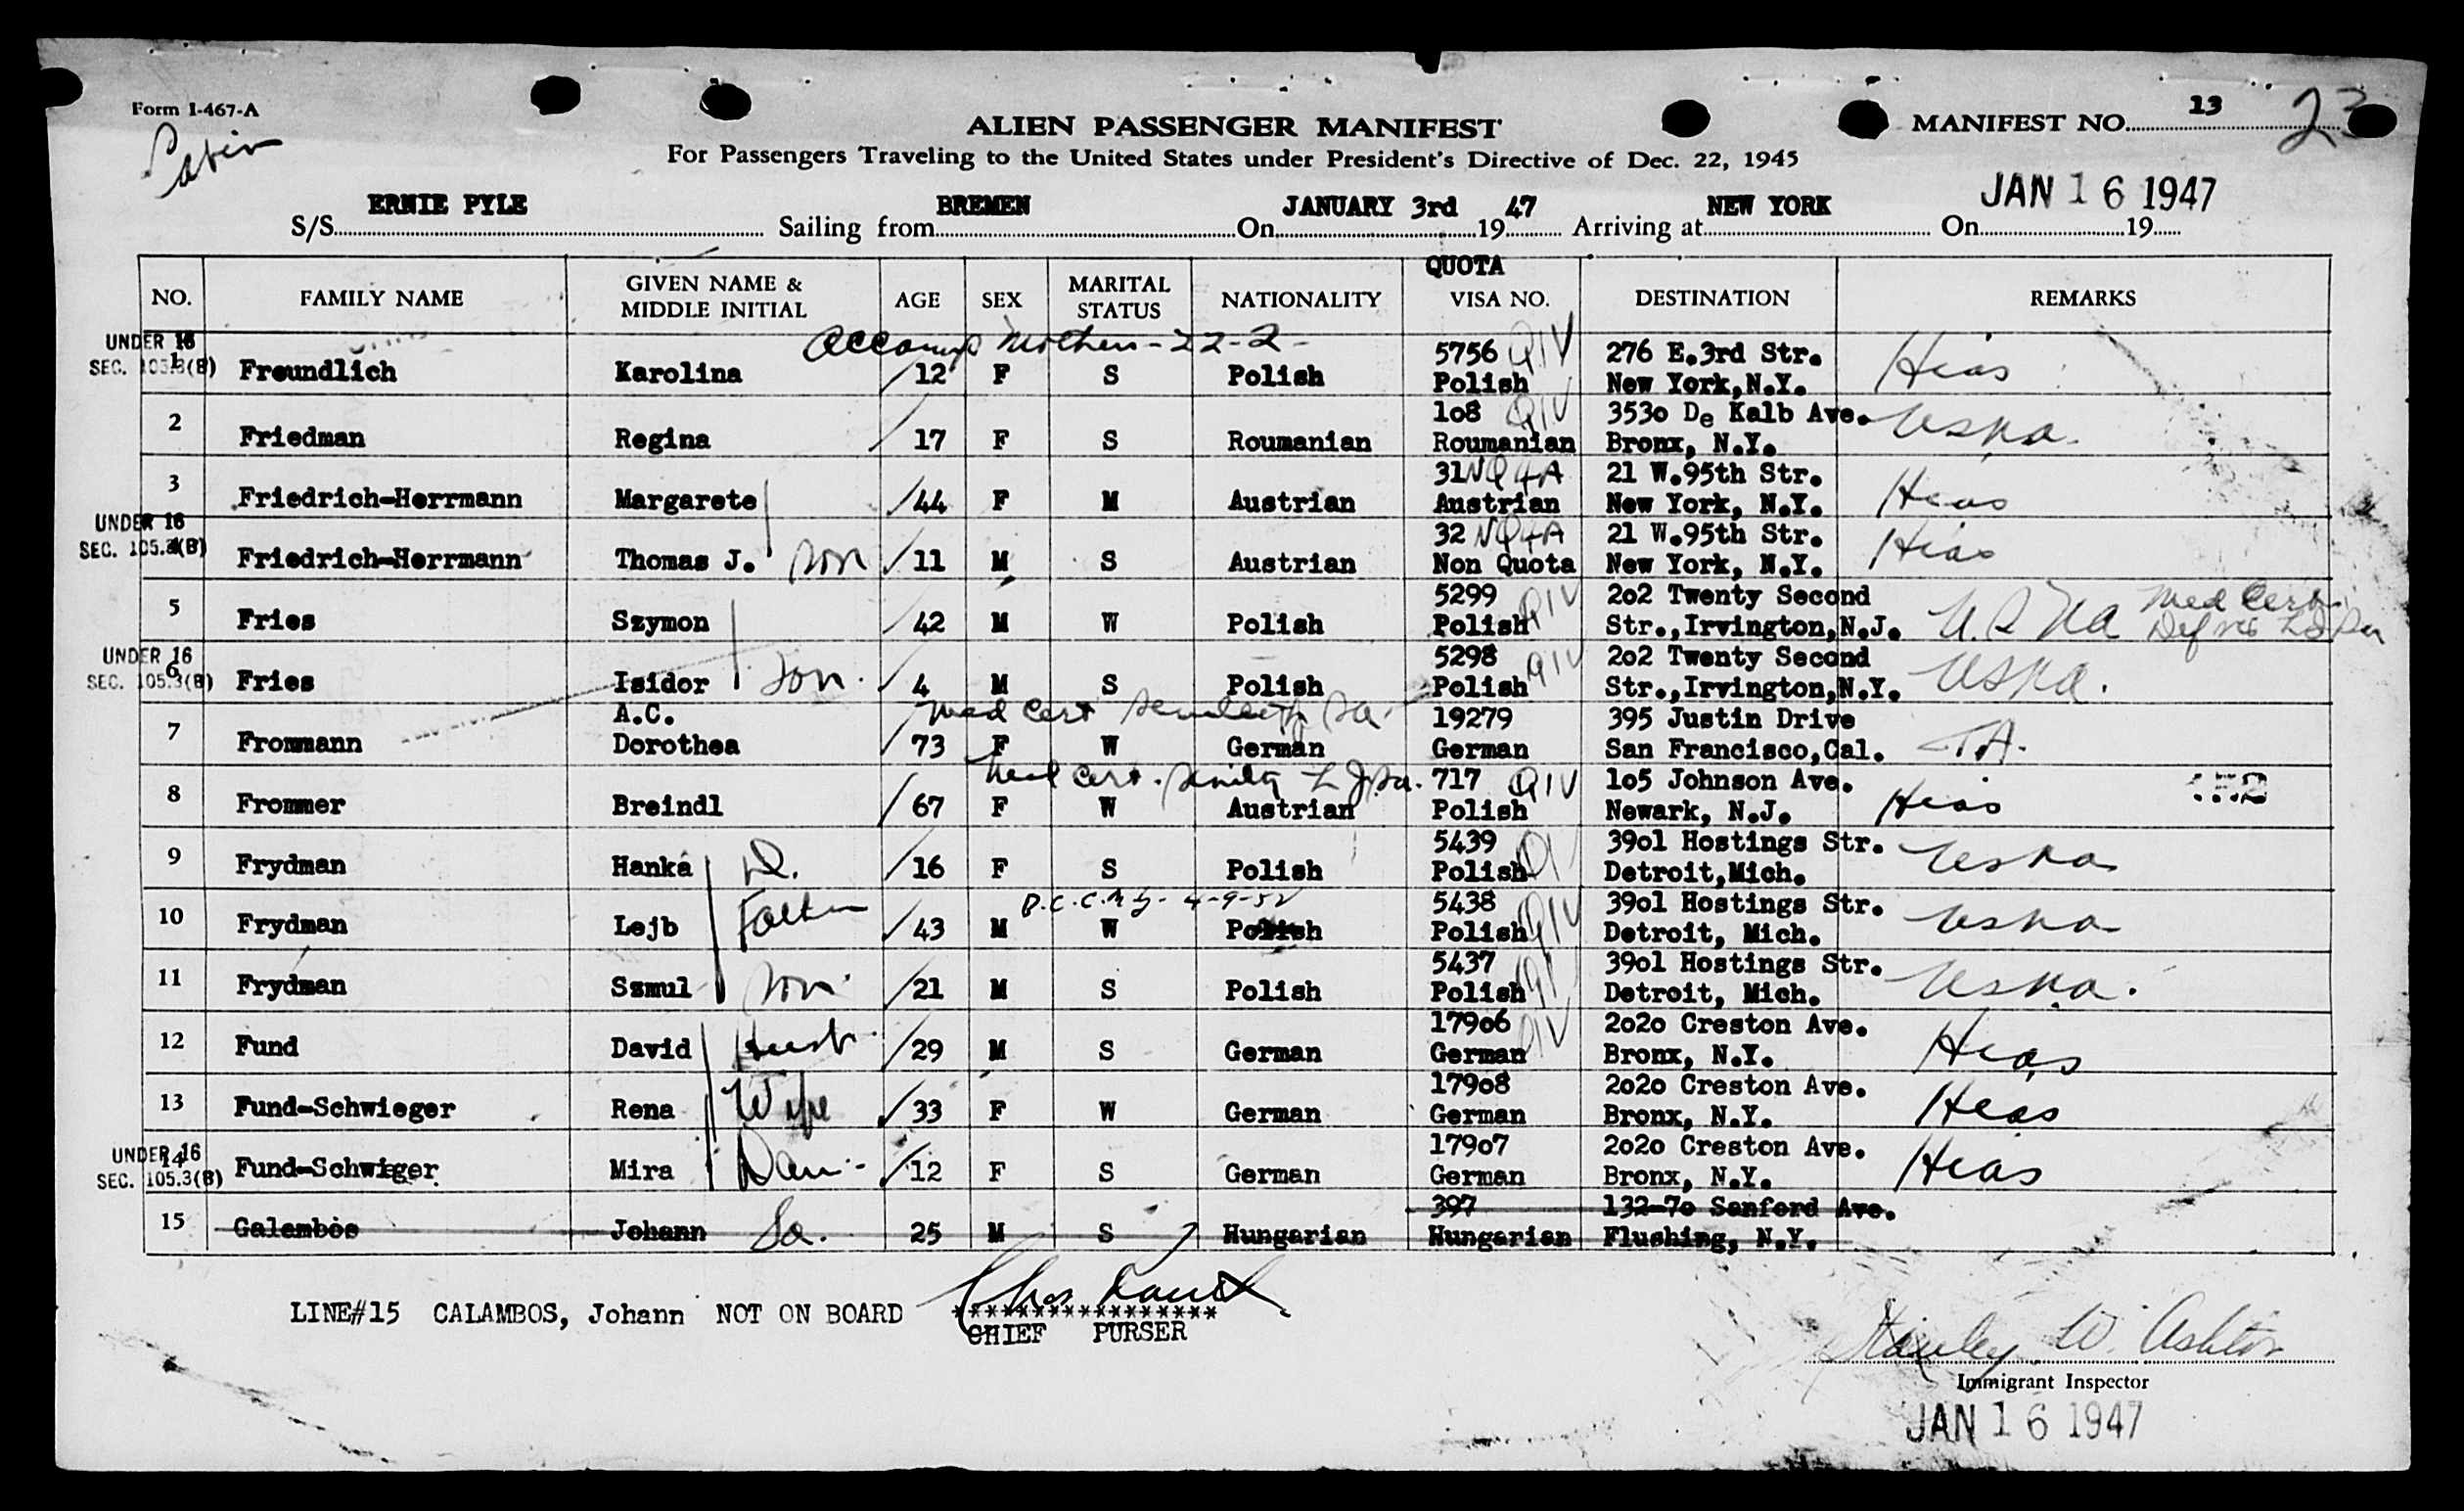 Form I-467-A
Cabin
ALIEN PASSENGER MANIFEST
MANIFEST NO. 13 23
For Passengers Traveling to the United States under President's Directive of Dec. 22, 1945
S/S ERNIE PYLE Sailing from BREMEN On JANUARY 3rd 19 47 Arriving at NEW YORK On JAN 16 1947 19
NO. FAMILY NAME GIVEN NAME & MIDDLE INITIAL AGE SEX MARITAL STATUS NATIONALITY QUOTA VISA NO. DESTINATION REMARKS
Accomp Mother - 22-2 -
UNDER 16 SEC. 105.3(B) 1 Freundlich Karolina 12 F S Polish 5756 QIV Polish 276 E.3rd Str. New York,N.Y. Hias
2 Friedman Regina 17 F S Roumanian 1o8 QIV Roumanian 353o De Kalb Ave. Bronx, N.Y. Usna.
3 Friedrich-Herrmann Margarete 44 F M Austrian 31 NQ4A Austrian 21 W.95th Str. New York, N.Y. Hias
UNDER 16 SEC. 105.3(B) 4 Friedrich-Herrmann Thomas J. son 11 M S Austrian 32 NQ4A Non Quota 21 W.95th Str. New York, N.Y. Hias
5 Fries Szymon 42 M W Polish 5299 QIV Polish 2o2 Twenty Second Str.,Irvington,N.J. USNA Med Cert
UNDER 16 SEC. 105.3(B) 6 Fries Isidor son. 4 M S Polish 5298 QIV Polish 2o2 Twenty Second Str.,Irvington,N.Y. USNA.
Med Cert
7 Frommann A.C. Dorothea 73 F W German 19279 German 395 Justin Drive San Francisco,Cal. TA.
Med Cert. Senility
8 Frommer Breindl 67 F W Austrian 717 QIV Polish 1o5 Johnson Ave. Newark, N.J. Hias
9 Frydman Hanka D. 16 F S Polish 5439 QIV Polish 39o1 Hostings Str. Detroit,Mich. Usna
4-9-52
10 Frydman Lejb Father 43 M W Polish 5438 QIV Polish 39o1 Hostings Str. Detroit, Mich. Usna
11 Frydman Szmul son 21 M S Polish 5437 QIV Polish 39o1 Hostings Str. Detroit, Mich. Usna.
12 Fund David Husb. 29 M S German 179o6 QIV German 2o2o Creston Ave. Bronx, N.Y. Hias
13 Fund-Schwieger Rena Wife 33 F W German 179o8 German 2o2o Creston Ave. Bronx, N.Y. Hias
UNDER 16 SEC. 105.3(B) 14 Fund-Schwiger Mira Dau. 12 F S German 179o7 German 2o2o Creston Ave. Bronx, N.Y. Hias
15 Galambos Johann 25 M S Hungarian 397 Hungarian 132-7o Sanford Ave. Flushing, N.Y.
LINE#15 CALAMBOS, Johann NOT ON BOARD
*****************
CHIEF PURSER
Stanley W. Ashton
Immigrant Inspector
JAN 16 1947